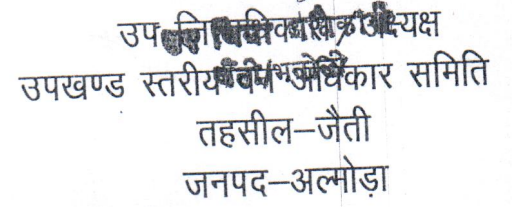 उप जिलाधिकारी/अध्यक्ष
उपखण्ड स्तरीय वन अधिकार समिति
तहसील–जैती
जनपद–अल्मोड़ा